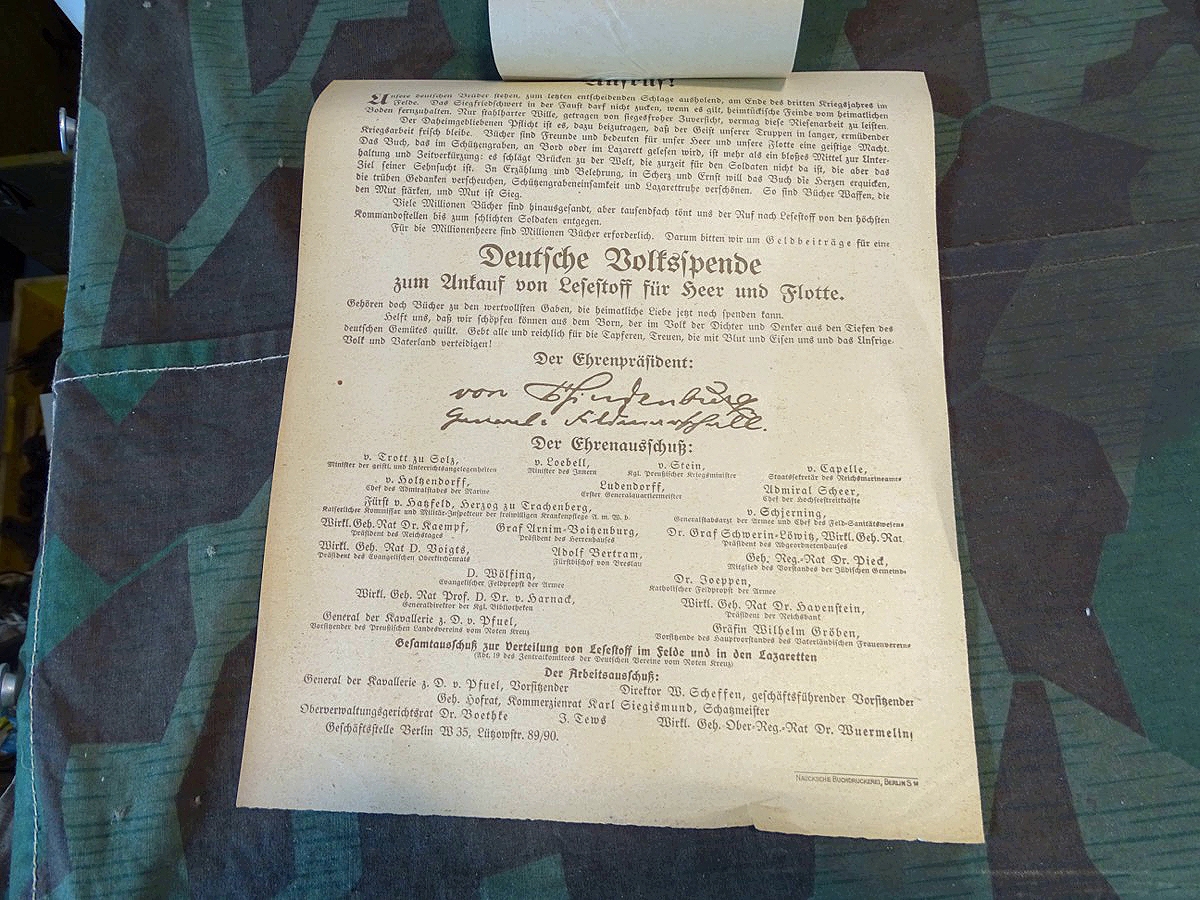 Aufruf!
Unsere deutschen Brüder stehen, zum letzten entscheidenden Schlage ausholend, am Ende des dritten Kriegsjahres im
Felde. Das Siegfriedschwert in der Faust darf nicht zucken, wenn es gilt, heimtückische Feinde vom heimatlichen
Boden fernzuhalten. Nur stahlharter Wille, getragen von siegesfroher Zuversicht, vermag diese Riesenarbeit zu leisten.
Der Daheimgebliebenen Pflicht ist es, dazu beizutragen, daß der Geist unserer Truppen in langer, ermüdender
Kriegsarbeit frisch bleibe. Bücher sind Freunde und bedeuten für unser Heer und unsere Flotte eine geistige Macht.
Das Buch, das im Schützengraben, an Bord oder im Lazarett gelesen wird, ist mehr als ein bloßes Mittel zur Unter-
haltung und Zeitverkürzung: es schlägt Brücken zu der Welt, die zurzeit für den Soldaten nicht da ist, die aber das
Ziel seiner Sehnsucht ist. In Erzählung und Belehrung, in Scherz und Ernst will das Buch die Herzen erquicken,
die trüben Gedanken verscheuchen, Schützengrabeneinsamkeit und Lazarettruhe verschönen. So sind Bücher Waffen, die
den Mut stärken, und Mut ist Sieg.
Viele Millionen Bücher sind hinausgesandt, aber tausendfach tönt uns der Ruf nach Lesestoff von den höchsten
Kommandostellen bis zum schlichten Soldaten entgegen.
Für die Millionenheere sind Millionen Bücher erforderlich. Darum bitten wir um Geldbeiträge für eine
Deutsche Volksspende
zum Ankauf von Lesestoff für Heer und Flotte.
Gehören doch Bücher zu den wertvollsten Gaben, die heimatliche Liebe jetzt noch spenden kann.
Helft uns, daß wir schöpfen können aus dem Born, der im Volk der Dichter und Denker aus den Tiefen des
deutschen Gemütes quillt. Gebt alle und reichlich für die Tapferen, Treuen, die mit Blut und Eisen uns und das Unsrige
Volk und Vaterland verteidigen!
Der Ehrenpräsident:
von Hindenburg
General-Feldmarschall.
Der Ehrenausschuß:
v. Trott zu Solz, v. Loebell, v. Stein, v. Capelle,
Minister der geistl. und Unterrichtsangelegenheiten Minister des Innern Kgl. Preußischer Kriegsminister Staatssekretär des Reichsmarineamts
v. Holtzendorff, Ludendorff, Admiral Scheer,
Chef des Admiralstabes der Marine Erster Generalquartiermeister Chef der Hochseestreitkräfte
Fürst v. Hatzfeld, Herzog zu Trachenberg, v. Schjerning,
Kaiserlicher Kommissar und Militär-Inspekteur der freiwilligen Krankenpflege A. m. W. b. Generalstabsarzt der Armee und Chef des Feld-Sanitätswesens
Wirkl. Geh. Rat Dr. Kaempf, Graf Arnim-Boitzenburg, Dr. Graf Schwerin-Löwitz, Wirkl. Geh. Rat
Präsident des Reichstages Präsident des Herrenhauses Präsident des Abgeordnetenhauses
Wirkl. Geh. Rat D. Voigts, Adolf Bertram, Geh. Reg.-Rat Dr. Pieck,
Präsident des Evangelischen Oberkirchenrats Fürstbischof von Breslau Mitglied des Vorstandes der Jüdischen Gemeinde
D. Wölfing, Dr. Joeppen,
Evangelischer Feldpropst der Armee Katholischer Feldpropst der Armee
Wirkl. Geh. Rat Prof. D. Dr. v. Harnack, Wirkl. Geh. Rat Dr. Havenstein,
Generaldirektor der Kgl. Bibliotheken Präsident der Reichsbank
General der Kavallerie z. D. v. Pfuel, Gräfin Wilhelm Gröben,
Vorsitzender des Preußischen Landesvereins vom Roten Kreuz Vorsitzende des Hauptvorstandes des Vaterländischen Frauenvereins
Gesamtausschuß zur Verteilung von Lesestoff im Felde und in den Lazaretten
(Abt. 19 des Zentralkomitees der Deutschen Vereine vom Roten Kreuz)
Der Arbeitsausschuß:
General der Kavallerie z. D. v. Pfuel, Vorsitzender Direktor W. Scheffen, geschäftsführender Vorsitzender
Geh. Hofrat, Kommerzienrat Karl Siegismund, Schatzmeister
Oberverwaltungsgerichtsrat Dr. Boethke J. Tews Wirkl. Geh.-Ober-Reg.-Rat Dr. Wuermeling
Geschäftsstelle Berlin W 35, Lützowstr. 89/90.
Naucksche Buchdruckerei, Berlin S 14